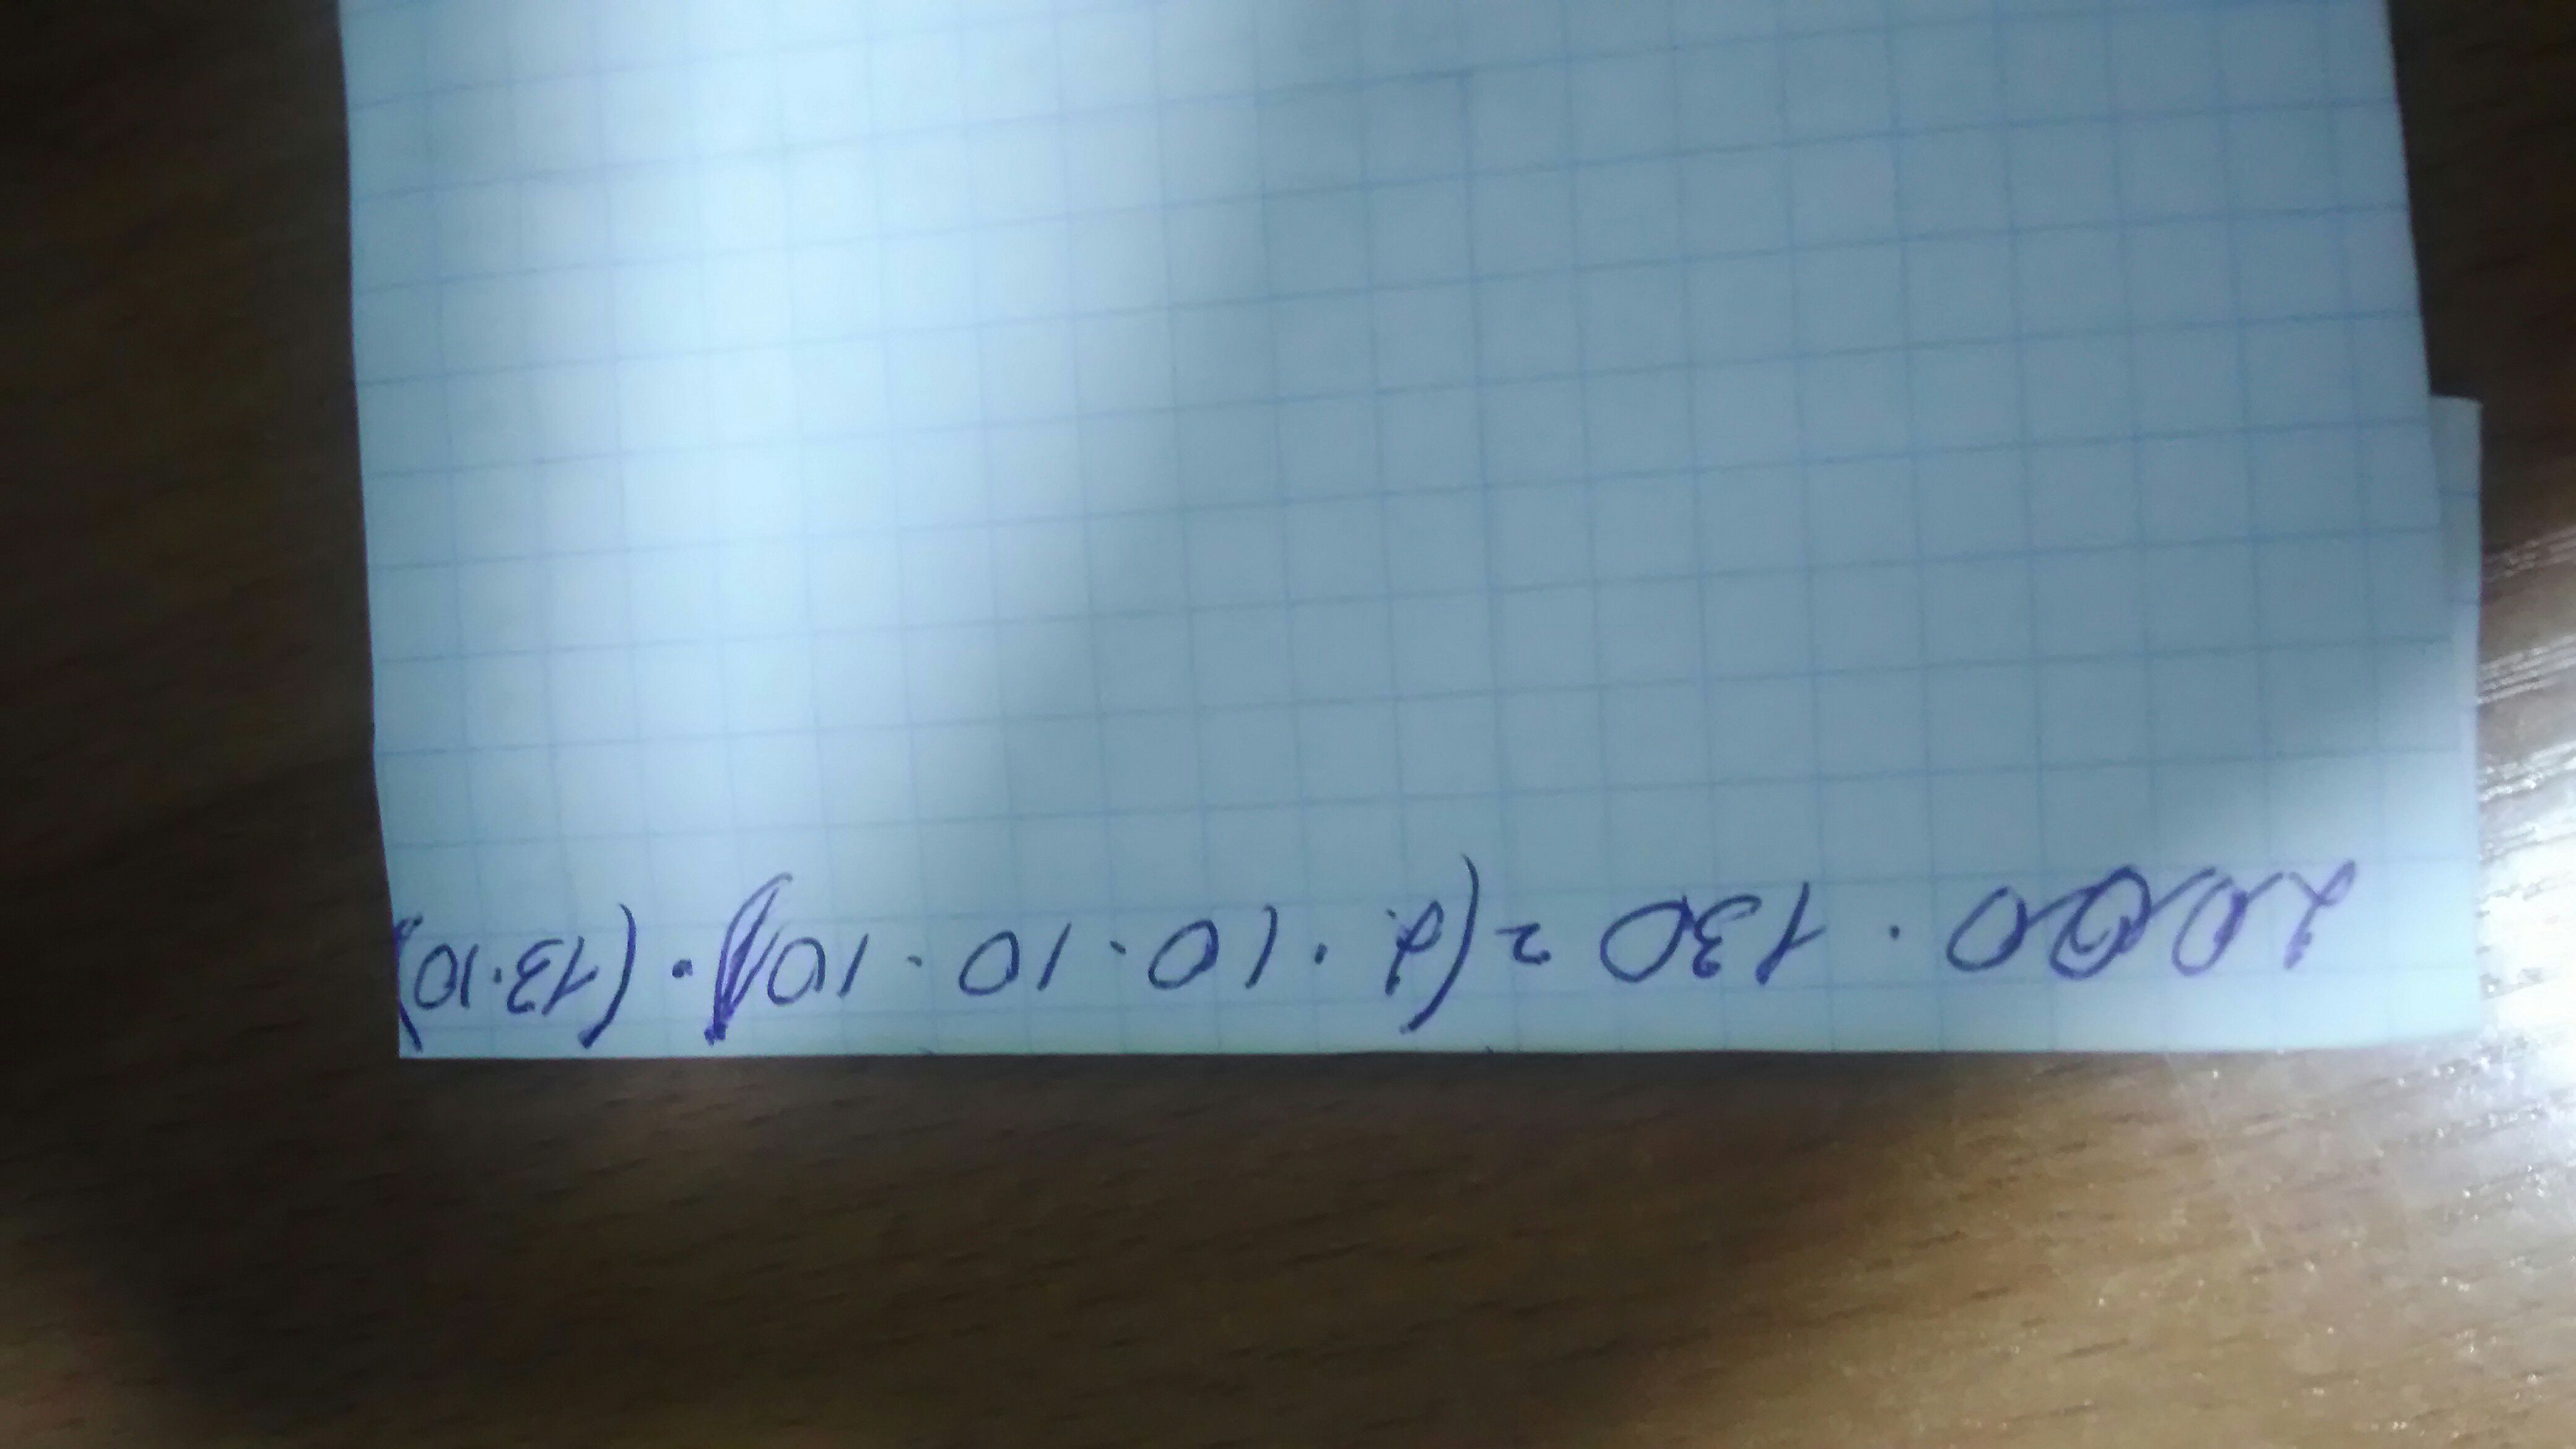 2000 · 130 = (2 · 10 · 10 · 10) · (13·10)